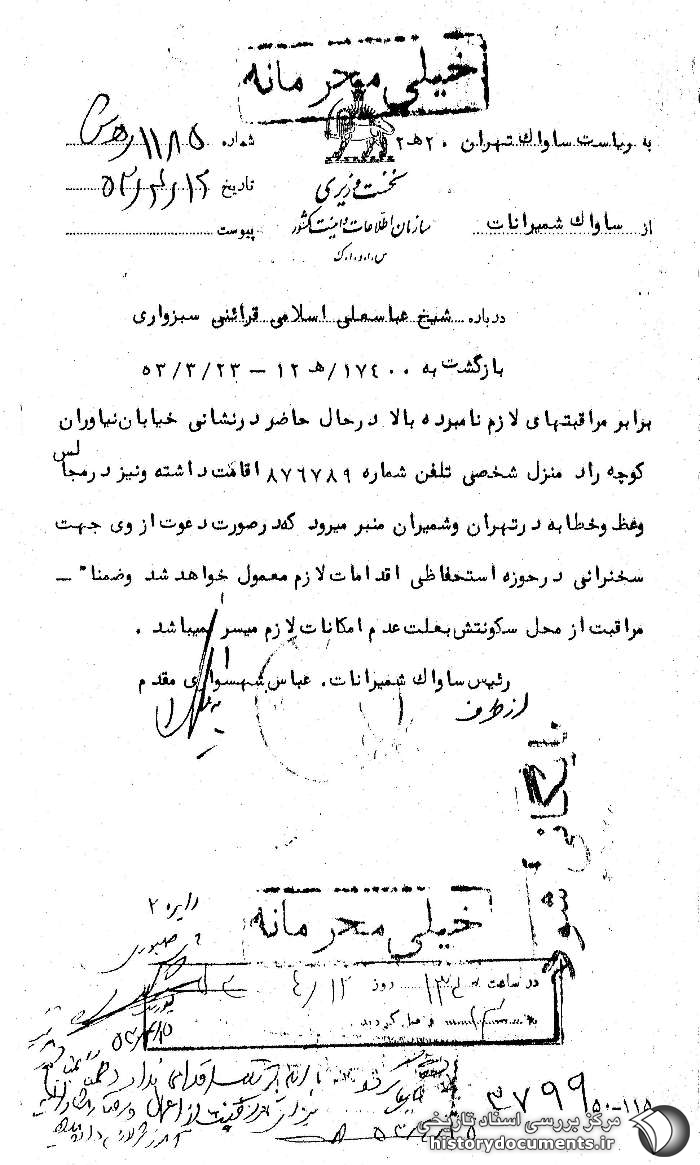 خیلی محرمانه
به ریاست ساواک تهران ۲۰هـ۲
شماره ۱۱۸۵
نخست وزیری
تاریخ
از ساواک شمیرانات
سازمان اطلاعات و امنیت کشور
پیوست
س.ا.و.ا.ک
درباره شیخ عباسعلی اسلامی قرائنی سبزواری
بازگشت به ۱۷۴۰۰/هـ ۱۲ – ۵۳/۳/۲۳
برابر مراقبتهای لازم نامبرده بالا درحال حاضر درنشانی خیابان نیاوران
کوچه راد منزل شخصی تلفن شماره ۸۷۶۷۸۹ اقامت داشته ونیز درمجالس
وعظ وخطابه درتهران وشمیران منبر میرود که درصورت دعوت از وی جهت
سخنرانی درحوزه استحفاظی اقدامات لازم معمول خواهد شد وضمنا" –
مراقبت از محل سکونتش بعلت عدم امکانات لازم میسر نمیباشد .
رئیس ساواک شمیرانات. عباس شهسواری مقدم
از طرف
بایگانی شود
خیلی محرمانه
دایره ۲
در ساعت روز ۴/۱۲
واصل گردید
۳۷۹۹
۵۰-۱۱۸
مرکز بررسی اسناد تاریخی
historydocuments.ir